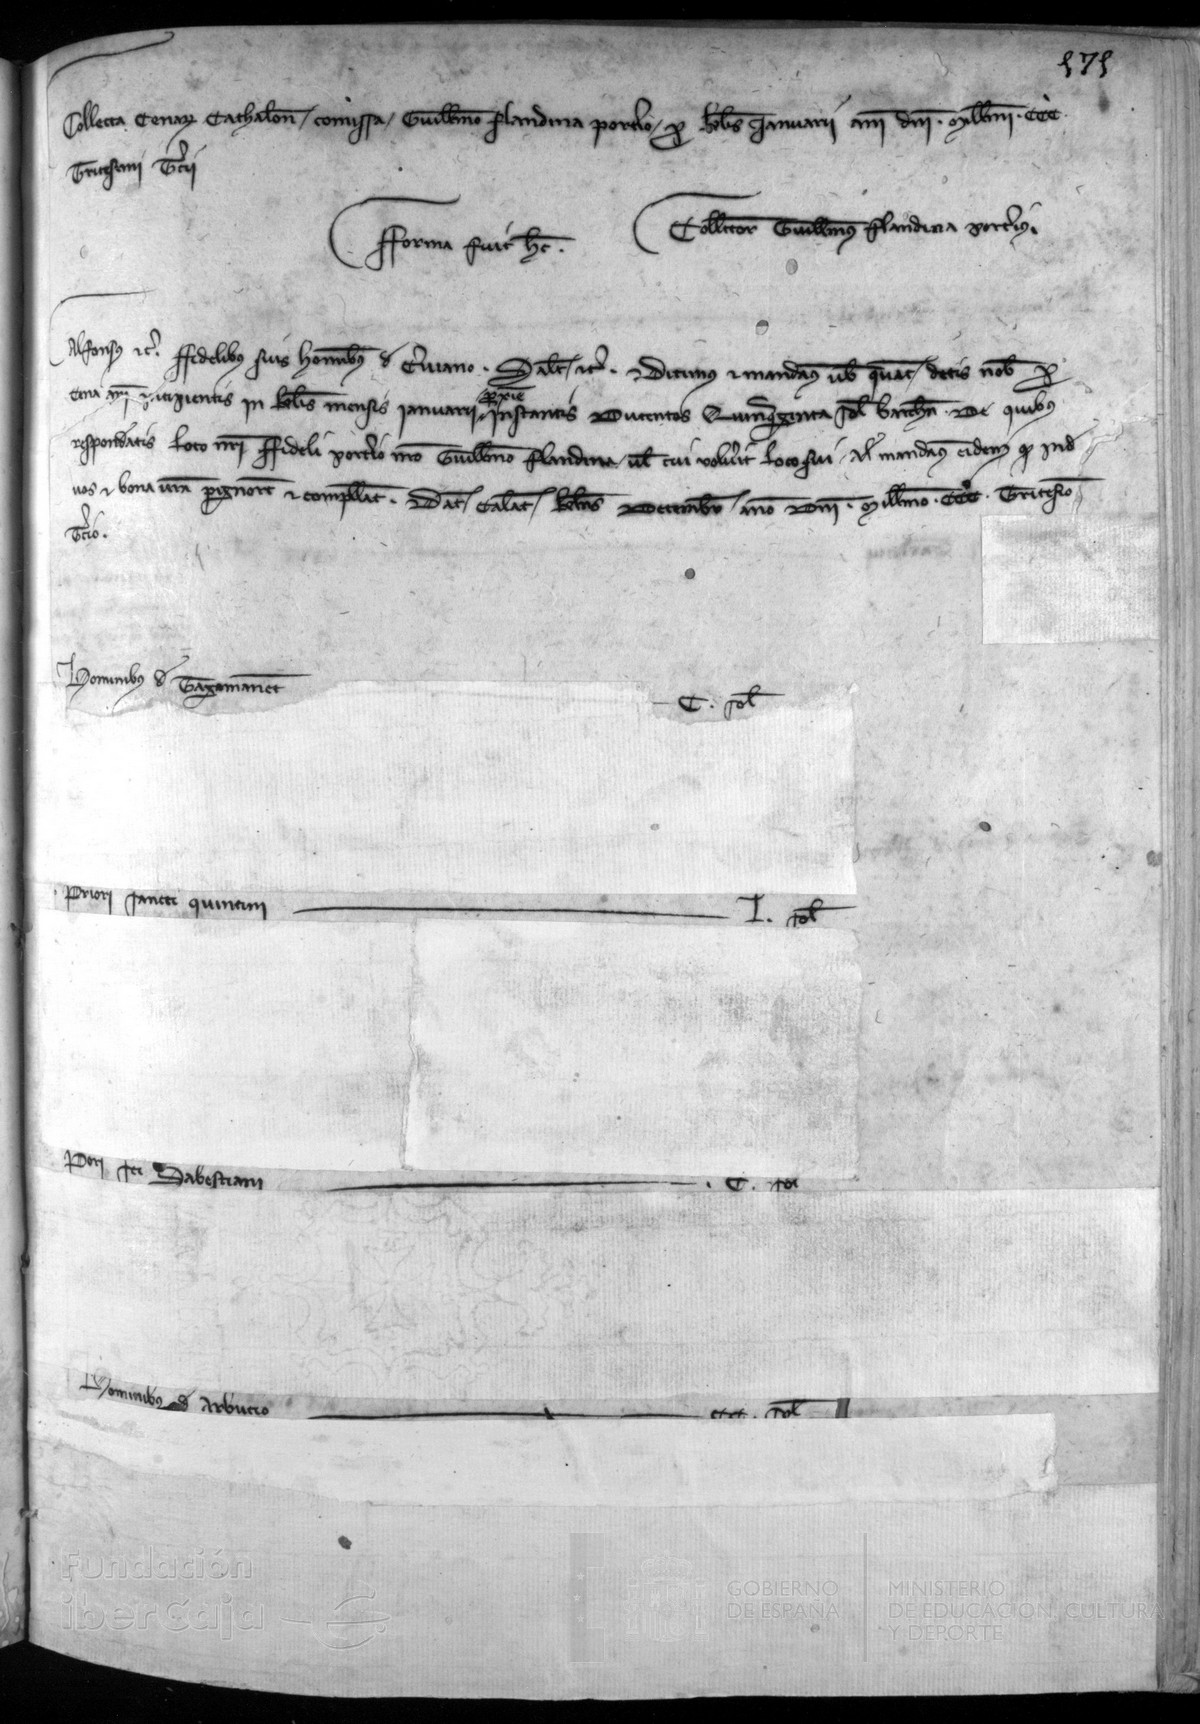 171
Collecta Cenar Cathalon / comissa / Guillmo Flandina portio / p klis Januarii anni dni. Millmi. CCC.
Tricesimi Tcii
Fforma fuit hec.
Collector Guillmus Flandina porterius
Alfonsus etc. Ffidelibus suis hominibus de Cerviano. Saltm etc. Dicimus et mandamus vob quat / detis nob p
Cena anni incipientis in klis mensis Januarii pxie instantis Ducentos Quinquginta sol barchn. De quibus
respondeatis loco nri Ffideli portio nro Guillmo Flandina / vl cui voluit loco sui. Al mandamus eidem q inde
vos et bona vra pignoret et compellat. Dat Calat / klns Decembr / anno Dni. Millmo. CCC. Tricesio
Tcio.
Hominibus de Tagamanent C. sol
Priori sancti quintini L. sol
Pori sci Sabestiani C. sol
Hominibus de Arbucio CC. sol
Fundación
iberCaja
GOBIERNO
DE ESPAÑA
MINISTERIO
DE EDUCACIÓN, CULTURA
Y DEPORTE